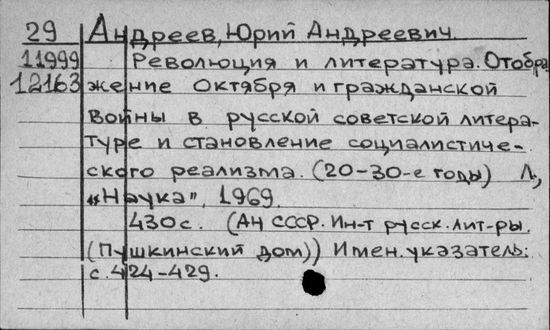 29 Андреев, Юрий Андреевич.
11999 Революция и литература. Отобра-
12163 жение Октября и гражданской
войны в русской советской литера-
туре и становление социалистиче-
ского реализма. (20-30-е годы) Л.,
"Наука", 1969.
430с. (АН СССР. Ин-т русск. лит-ры.
(Пушкинский дом)) Имен. указатель:
с. 424-429.